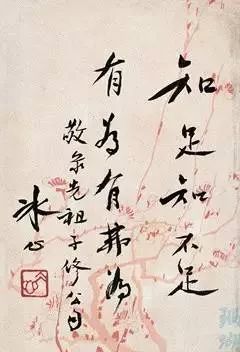 知足知不足
有為有弗為
敬录先祖子修公句
冰心